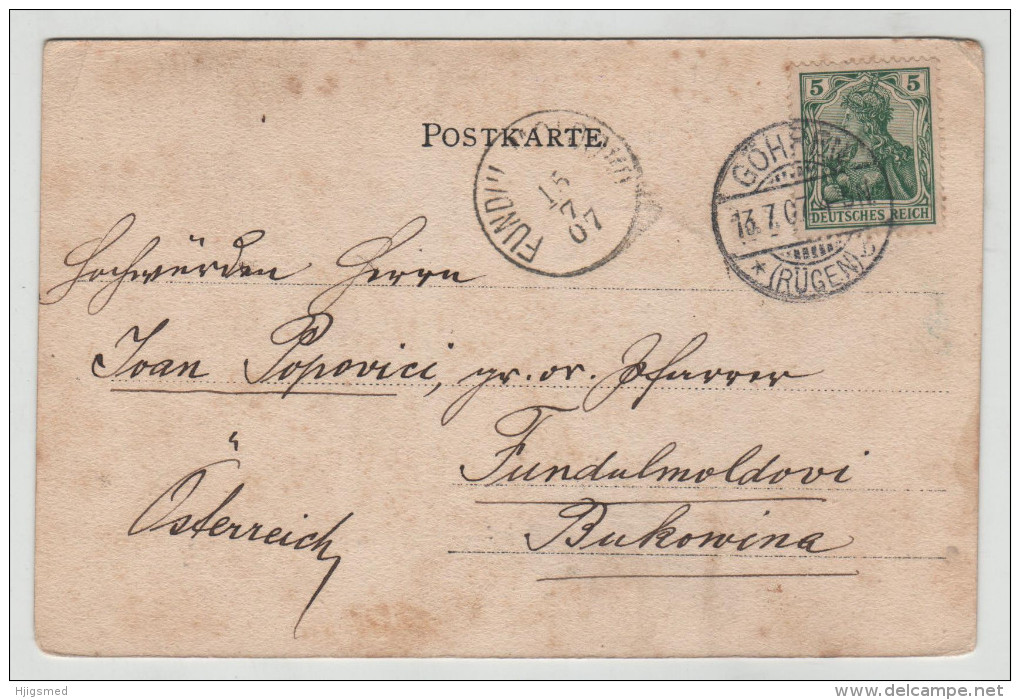 POSTKARTE
5 5
DEUTSCHES REICH
GÖHREN
13.7.07
* (RÜGEN)
FUNDUL
15
7
07
Hochwürden Herrn
Ioan Popovici, gr. or. Pfarrer
Fundulmoldovi
Bukowina
Österreich
Hjigsmed
www.delcampe.net